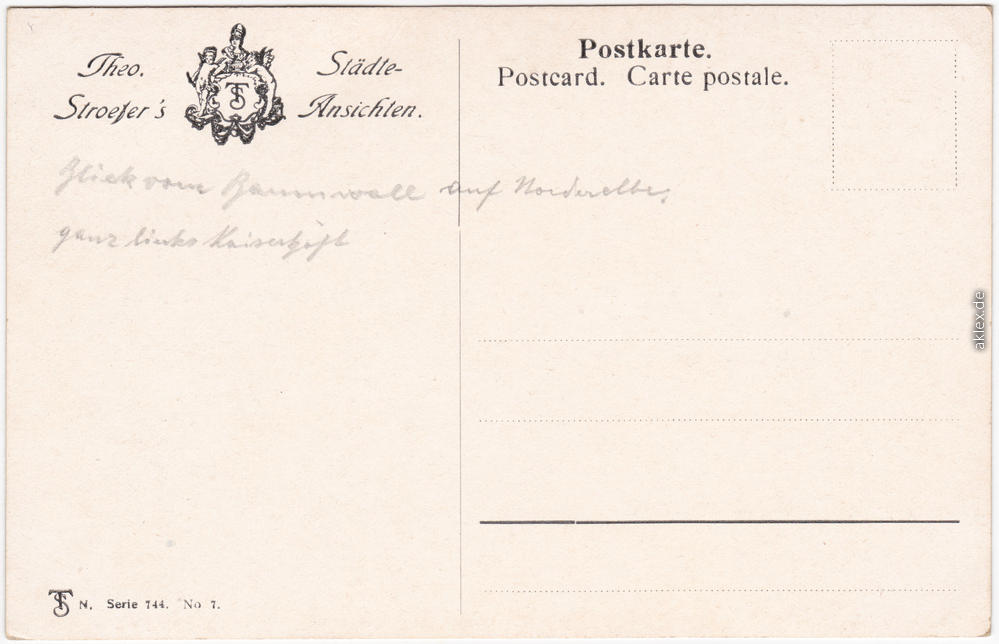 Theo. Städte-
Stroefer's Ansichten.
TS
Postkarte.
Postcard. Carte postale.
Blick vom Baumwall auf Norderelbe,
ganz links Kaiserhöft
TS N. Serie 744. No 7.
aklex.de